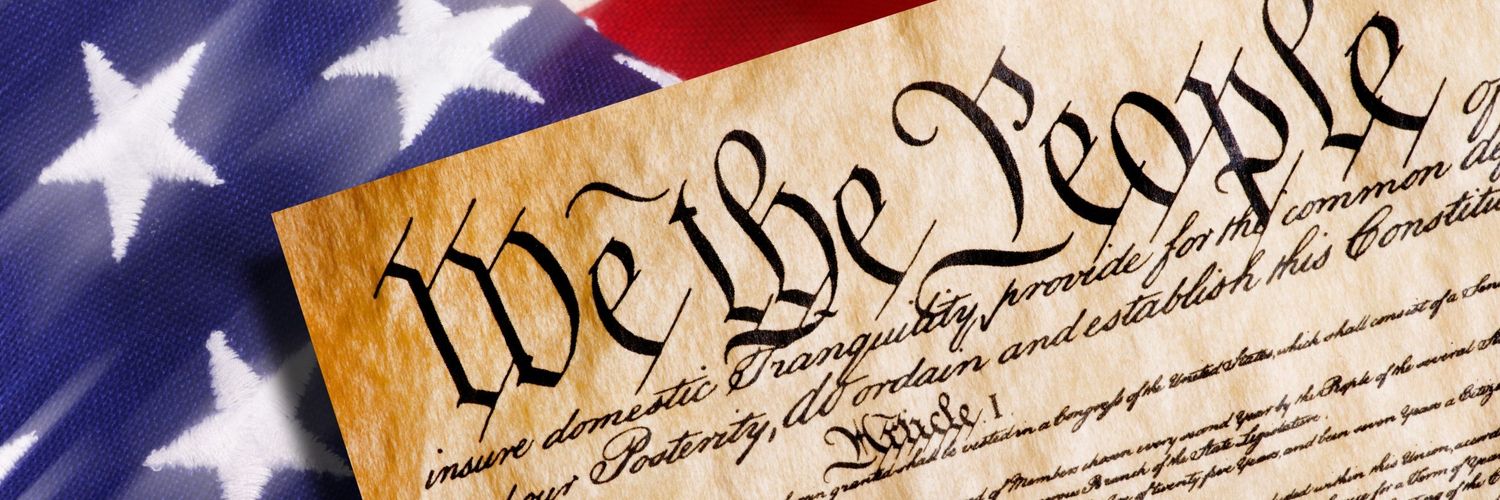 We the People of
insure domestic Tranquility, provide for the common de
our Posterity, do ordain and establish this Constitu
Article I.
granted shall be vested in a Congress of the United States, which shall consist of a Sen
of Members chosen every second Year by the People of the several Sta
Branch of the State Legislature.
of twenty five Years, and been seven Years a Citize
within this Union, accord
for a Term of Year
of the